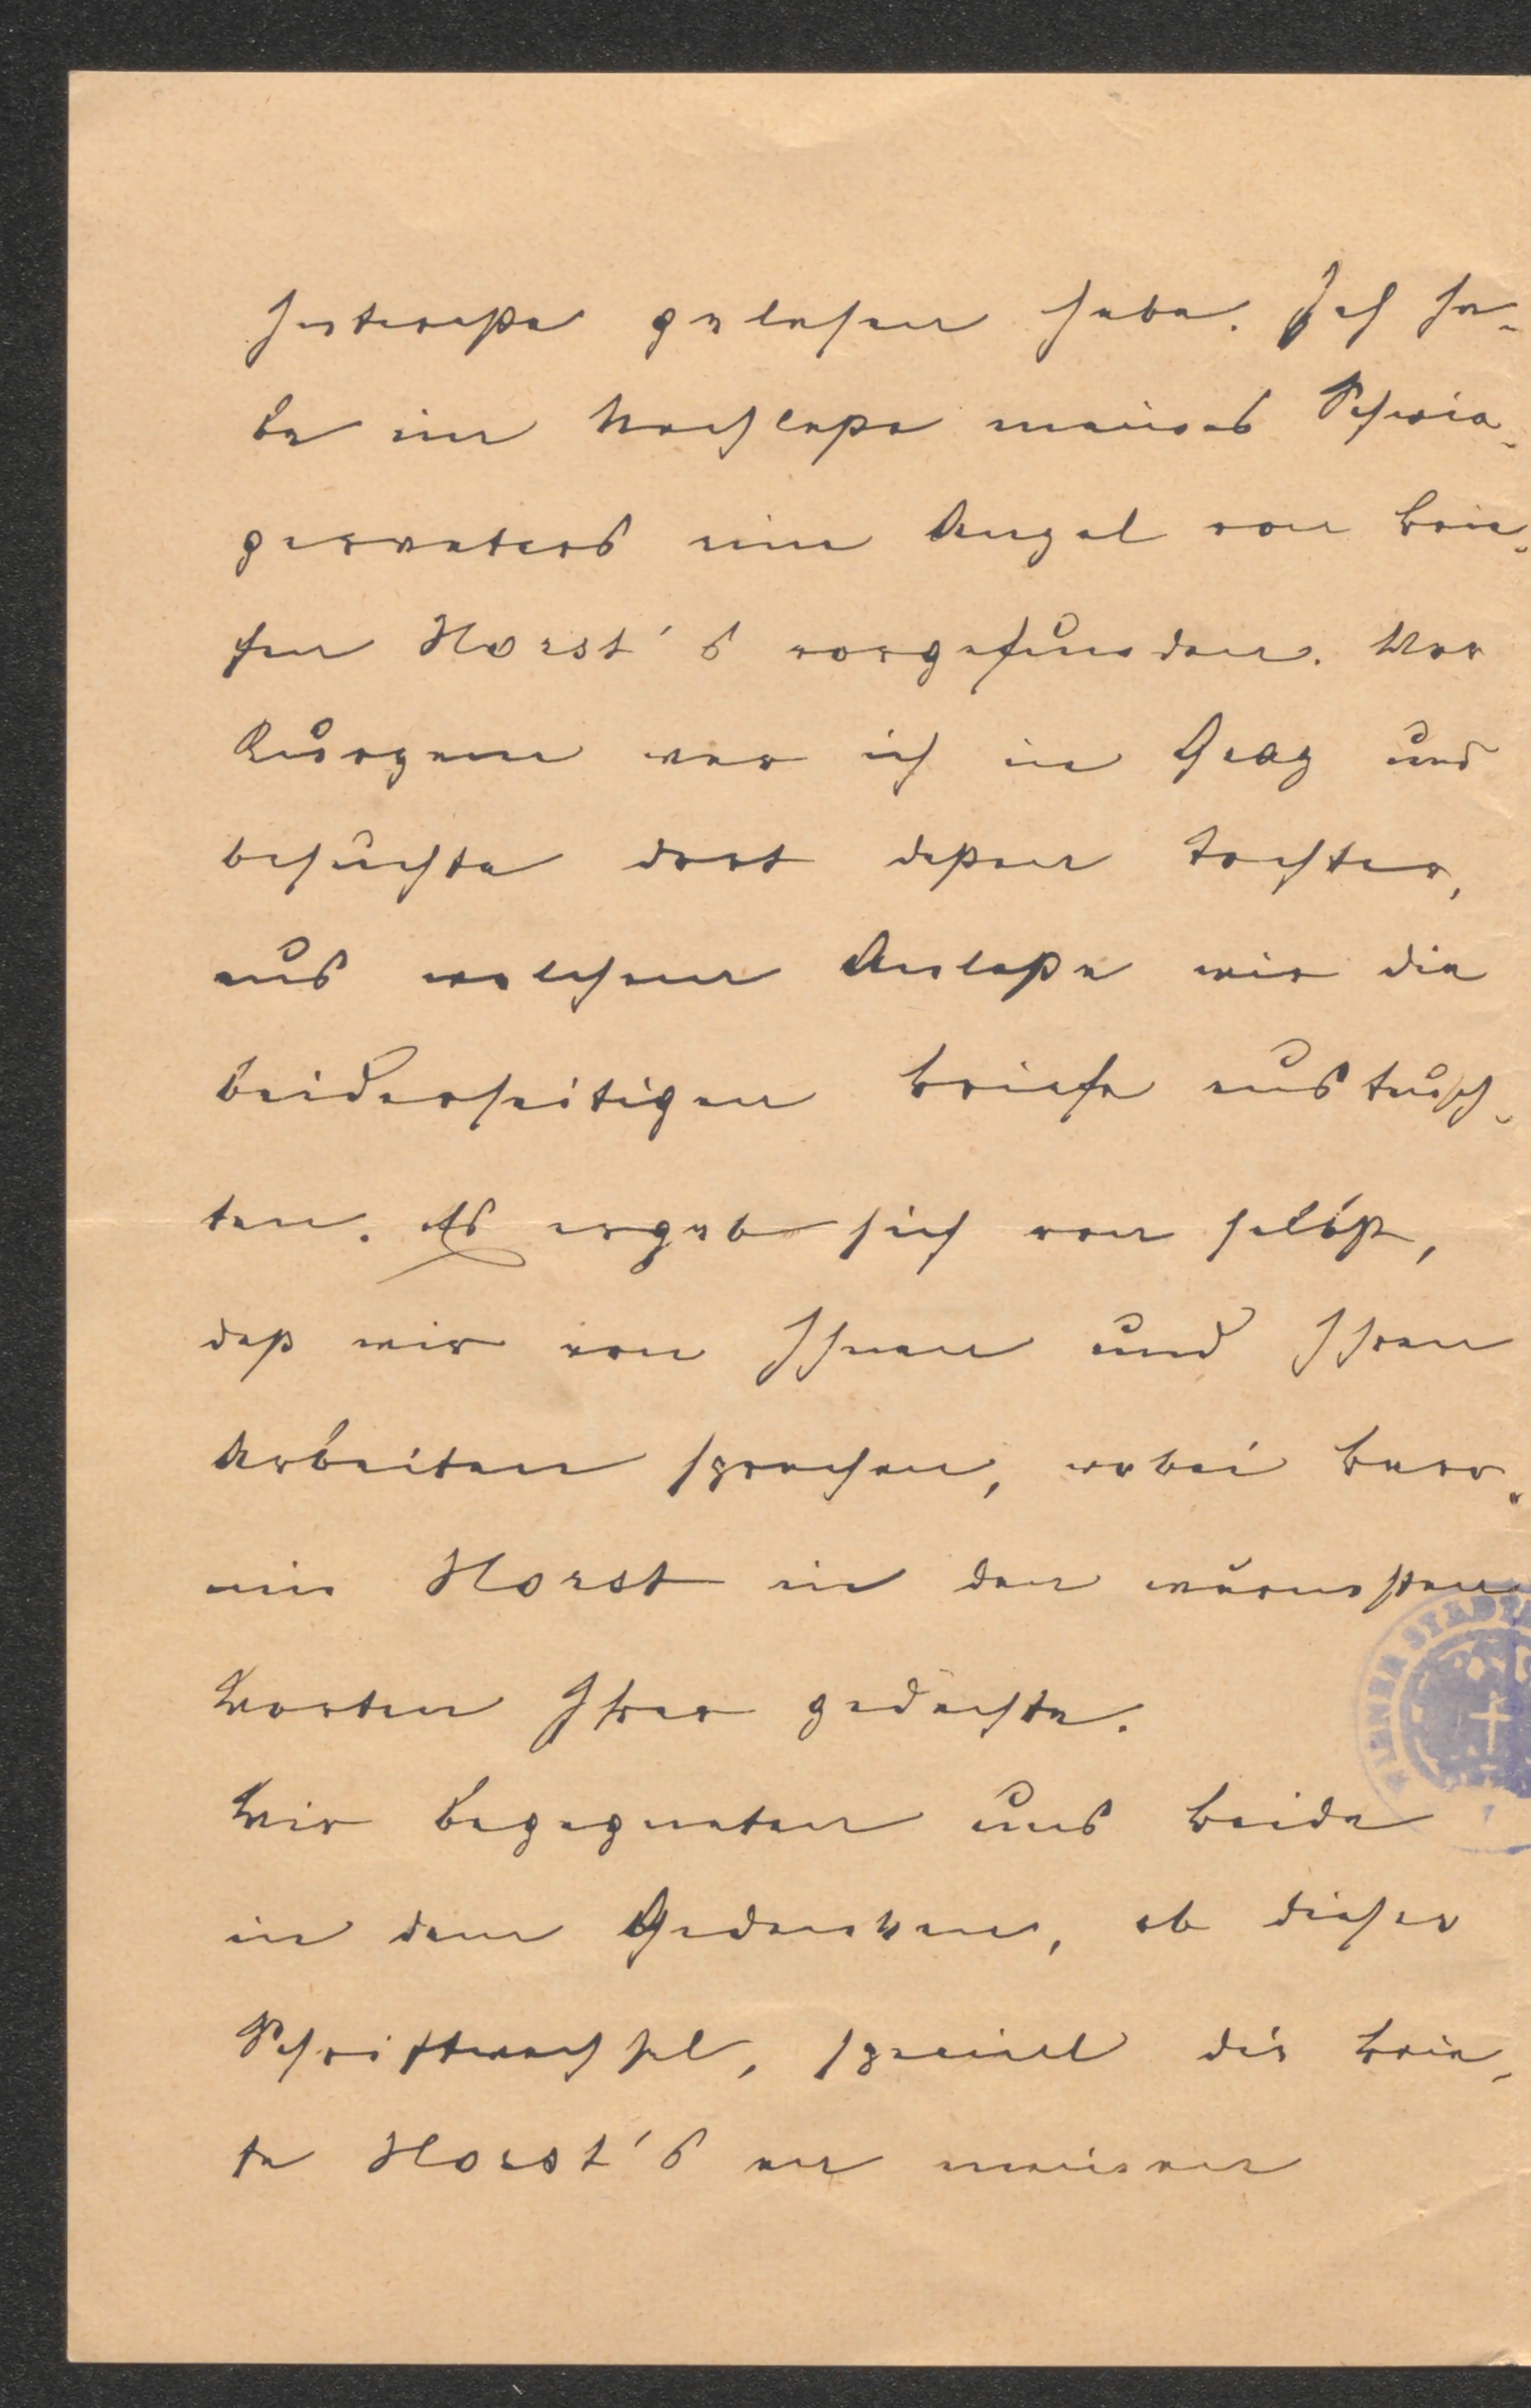 Interesse gelesen habe. Ich ha-
be im Nachlasse meines Schwie-
gervaters eine Anzal von Brie-
fen Horst's vorgefunden. Vor
Kurzem war ich in Graz und
besuchte dort dessen Tochter,
aus welchem Anlasse wir die
beiderseitigen Briefe austausch-
ten. Es ergab sich von selbst,
daß wir von Ihnen und Ihren
Arbeiten sprachen, wobei Baro-
nin Horst in den wärmsten
Worten Ihrer gedachte.
Wir begegneten uns beide
in dem Gedanken, ob dieser
Schriftwechsel, speciell die Brie-
fe Horst's an meinen
WIENER STÄDT